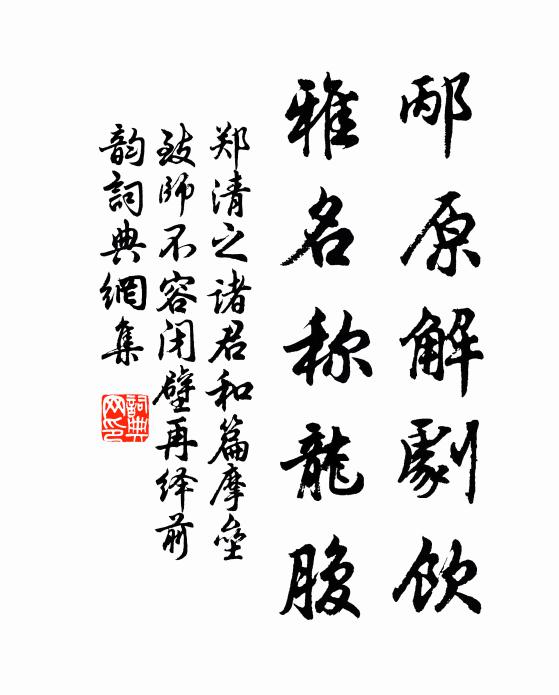 邴原解劇飲
雅名称龍腹
郑清之诸君和篇摩垒
致师不容闭壁再绎前
韵詞典網集
詞典网印